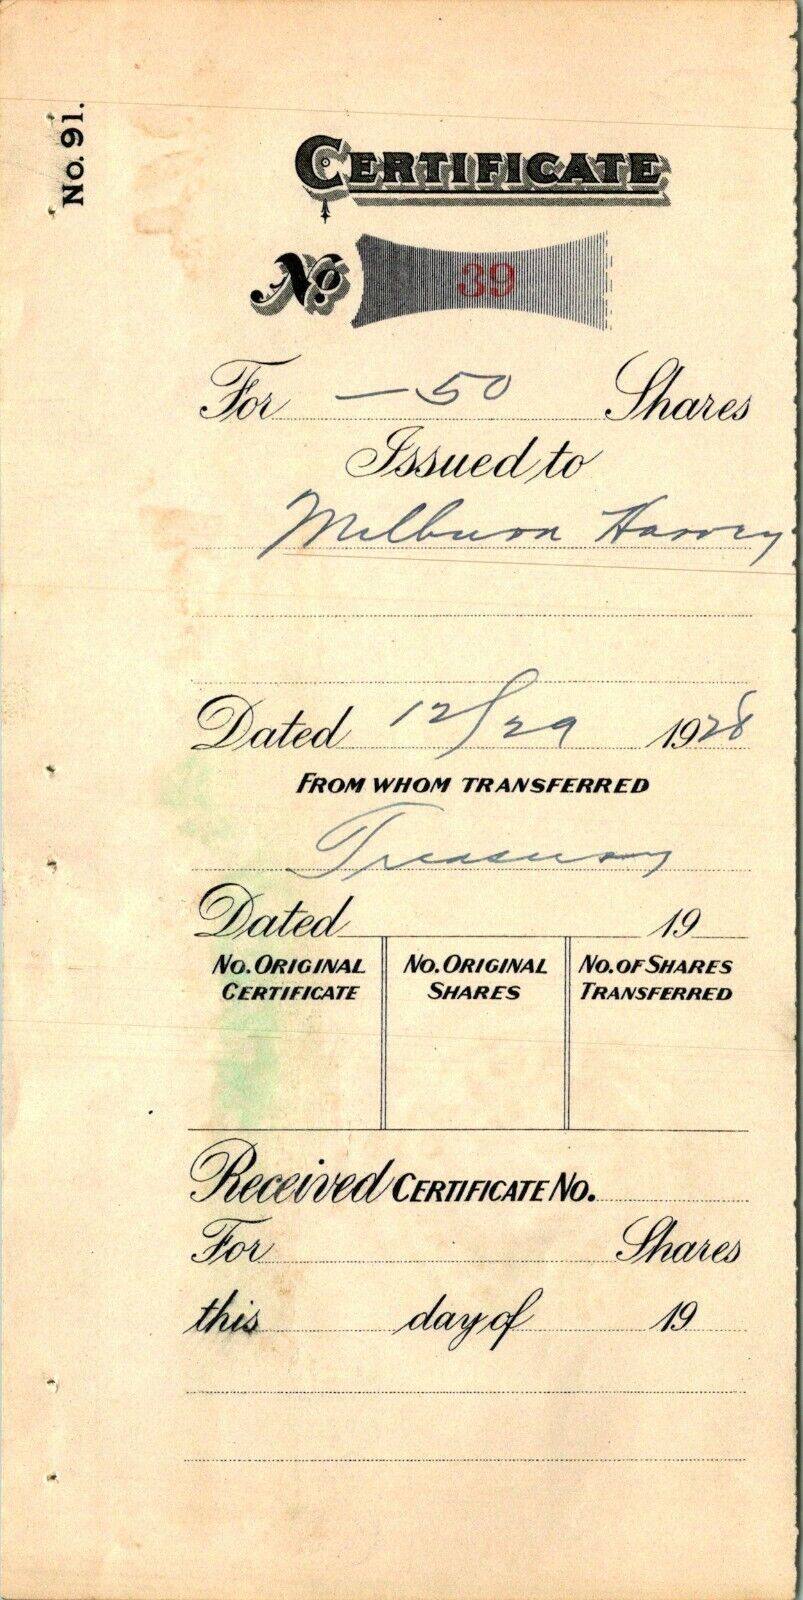 No. 91.
CERTIFICATE
No 39
For —50 Shares
Issued to
Milburn Harvey
Dated 12/29 1928
FROM WHOM TRANSFERRED
Treasury
Dated 19
NO. ORIGINAL CERTIFICATE NO. ORIGINAL SHARES NO. OF SHARES TRANSFERRED
Received CERTIFICATE NO.
For Shares
this day of 19